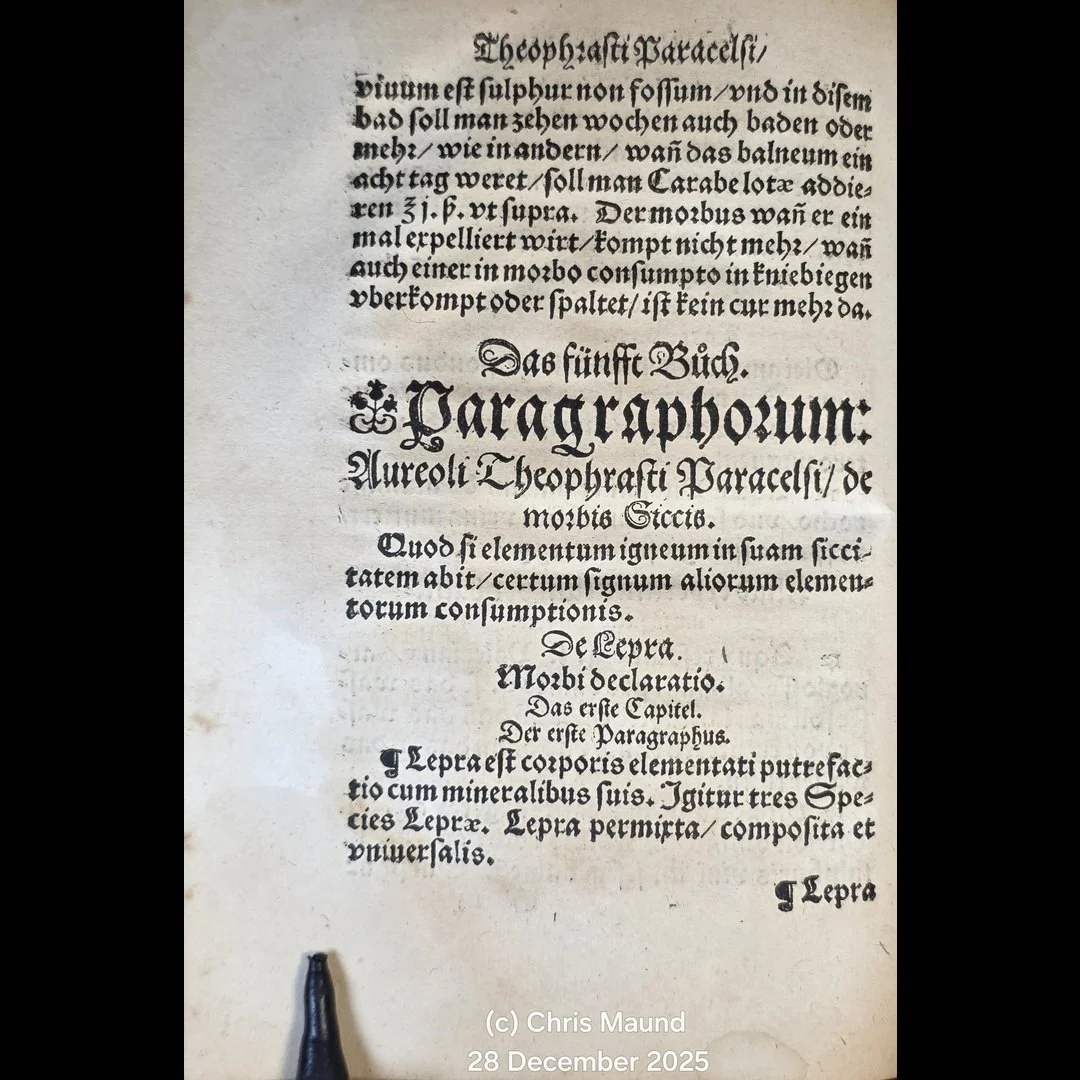 Theophrasti Paracelsi/
viuum est sulphur non fossum/vnd in disem
bad soll man zehen wochen auch baden oder
mehr/ wie in andern/ wañ das balneum ein
acht tag weret/soll man Carabe lotæ addie⸗
ren ℥ j. ß. vt supra. Der morbus wañ er ein
mal expelliert wirt/kompt nicht mehr/ wañ
auch einer in morbo consumpto in kniebiegen
vberkompt oder spaltet/ ist kein cur mehr da.
Das fünfft Bůch.
Paragraphorum:
Aureoli Theophrasti Paracelsi/ de
morbis Siccis.
Quod si elementum igneum in suam sicci⸗
tatem abit/certum signum aliorum elemen⸗
torum consumptionis.
De Lepra.
Morbi declaratio.
Das erste Capitel.
Der erste Paragraphus.
¶ Lepra est corporis elementati putrefac⸗
tio cum mineralibus suis. Igitur tres Spe⸗
cies Lepræ. Lepra permixta/ composita et
vniuersalis.
¶ Lepra
(c) Chris Maund
28 December 2025